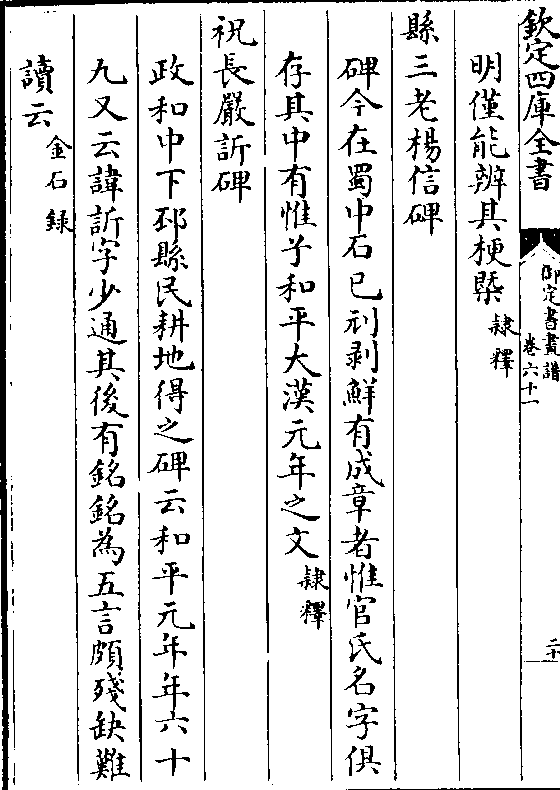 欽定四庫全書
御定書畫譜
卷六十一
二十
明僅能辨其梗槩隸釋
縣三老楊信碑
碑今在蜀中石已刓剥鮮有成章者惟官氏名字俱
存其中有惟兮和平大漢元年之文隸釋
祝長嚴訢碑
政和中下邳縣民耕地得之碑云和平元年年六十
九又云諱訢字少通其後有銘銘為五言頗殘缺難
讀云金石録